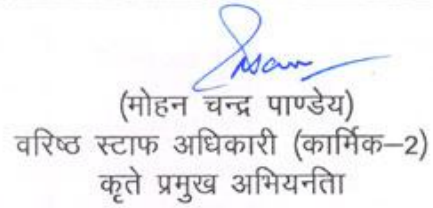 (मोहन चन्द्र पाण्डेय)
वरिष्ठ स्टाफ अधिकारी (कार्मिक–2)
कृते प्रमुख अभियर्नता